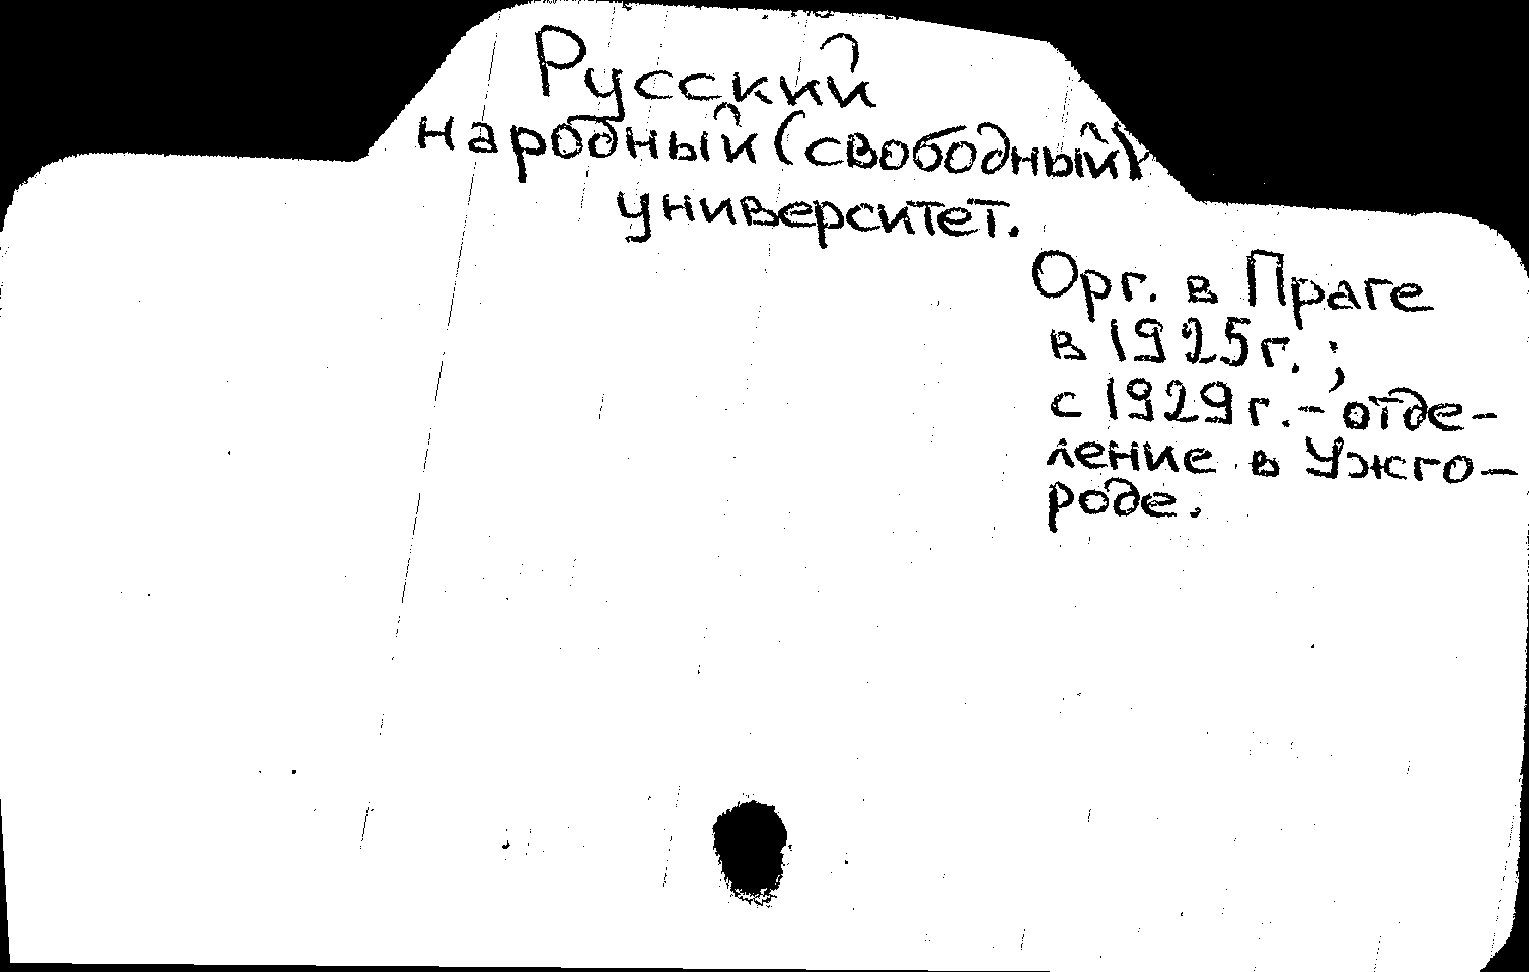 Русский
народный (свободный)
университет.
Орг. в Праге
в 1925г.;
с 1929г.- отде-
ление в Ужго-
роде.